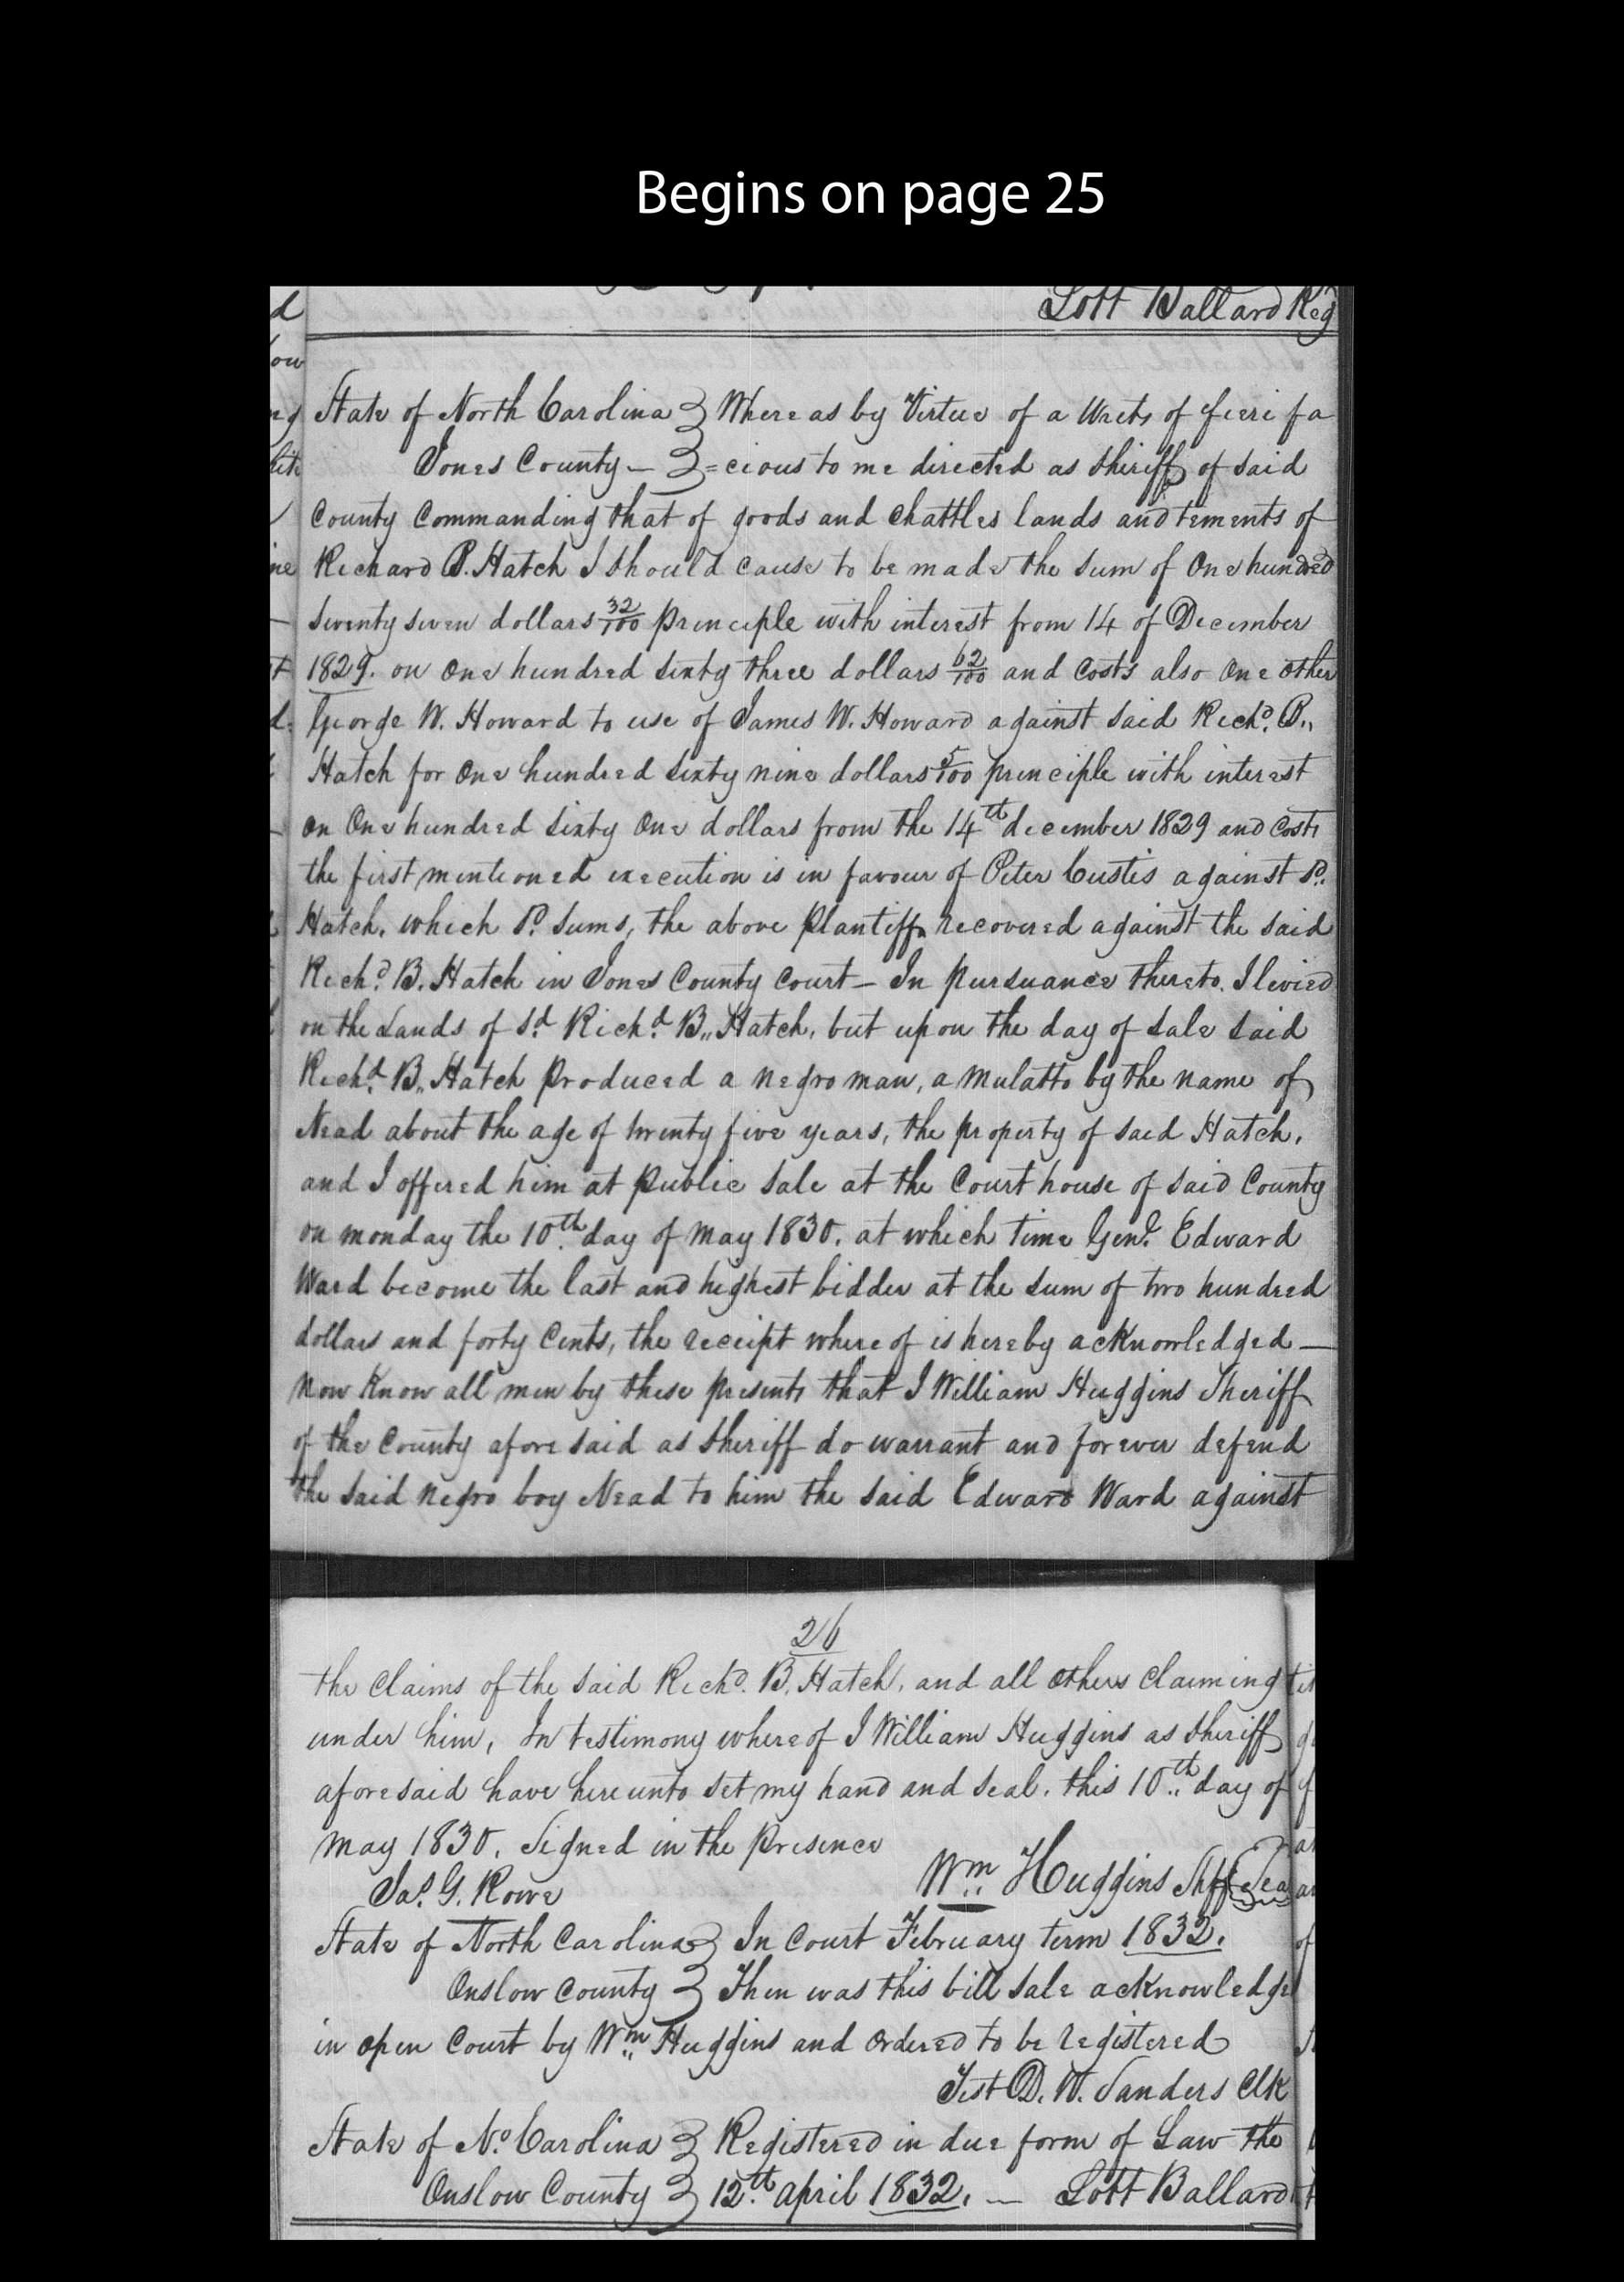 Begins on page 25
Lott Ballard Reg
State of North Carolina } Where as by Virtue of a Writs of fieri fa
Jones County — } =cious to me directed as Sheriff of said
County Commanding that of goods and Chattles lands and tements of
Richard B. Hatch I should cause to be made the sum of One hundred
seventy seven dollars 32/100 principle with interest from 14 of December
1829. on One hundred sixty three dollars 62/100 and Costs also One other
George W. Howard to use of James W. Howard against said Richd. B.,
Hatch for One hundred sixty nine dollars 5/100 principle with interest
on One hundred sixty One dollars from the 14th december 1829 and Costs
the first mentioned execution is in favour of Peter Custis against sd.
Hatch, which sd. sums, the above Plantiffs recovered against the said
Richd. B. Hatch in Jones County Court — In pursuance thereto. I levied
on the Lands of sd. Richd. B,, Hatch, but upon the day of sale said
Richd. B,, Hatch Produced a negro man, a Mulatto by the name of
Nead about the age of twenty five years, the property of said Hatch,
and I offered him at Public sale at the Court house of said County
on monday the 10th day of May 1830. at which time Genl. Edward
Ward become the last and highest bidder at the sum of two hundred
dollars and forty Cents, the receipt where of is hereby acknowledged —
Now Know all men by these presents that I William Huggins Sheriff
of the County afore said as Sheriff do warrant and forever defend
the said negro boy Nead to him the said Edward Ward against
26
the Claims of the said Richd. B. Hatch, and all Others Claiming
under him, In testimony where of I William Huggins as Sheriff
aforesaid have hereunto set my hand and seal. this 10th day of
May 1830. Signed in the Presence
Jas. G. Rowe
Wm Huggins Shff Sea
State of North Carolina } In Court February term 1832.
Onslow County } Then was this bill sale acknowledge
in open Court by Wm Huggins and Ordered to be registered
Test D. W. Sanders Clk
State of No. Carolina } Registered in due form of Law the
Onslow County } 12th April 1832. — Lott Ballard